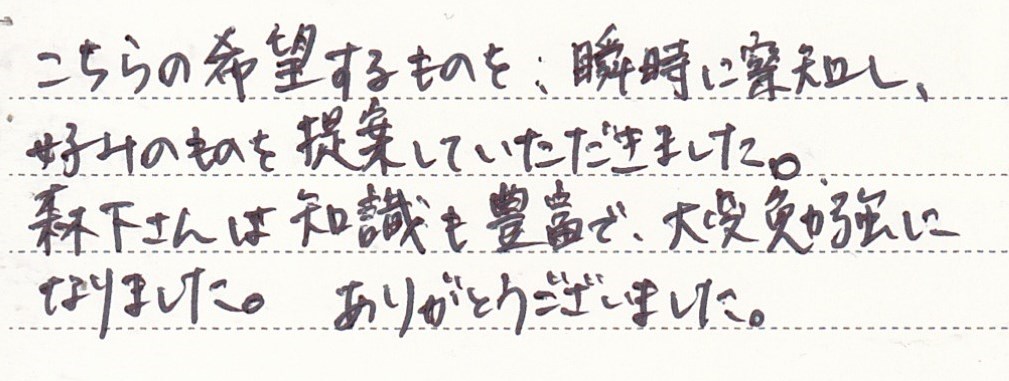 こちらの希望するものを、瞬時に察知し、
好みのものを提案していただきました。
森下さんは知識も豊富で、大変勉強に
なりました。 ありがとうございました。